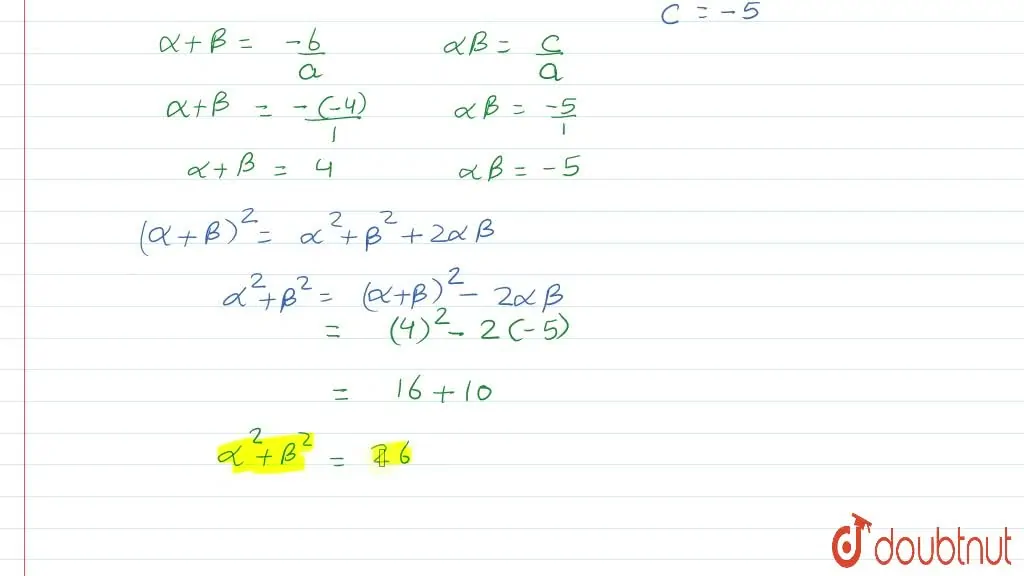 C = -5
α+β = -b/a αβ = c/a
α+β = -(-4)/1 αβ = -5/1
α+β = 4 αβ = -5
(α+β)² = α²+β²+2αβ
α²+β² = (α+β)² - 2αβ
= (4)² - 2(-5)
= 16+10
α²+β² = 26
doubtnut